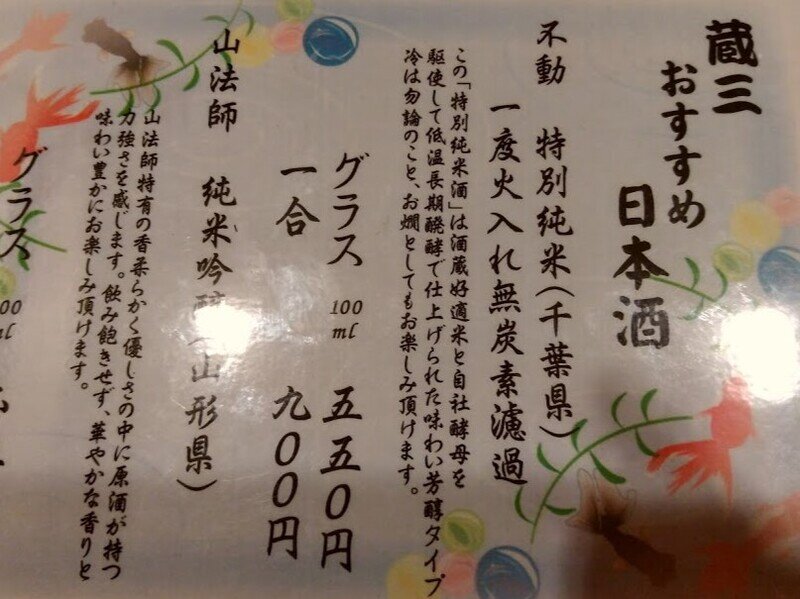 蔵三
おすすめ
日本酒
不動　特別純米(千葉県)
一度火入れ無炭素濾過
この「特別純米酒」は酒蔵好適米と自社酵母を
駆使して低温長期醗酵で仕上げられた味わい芳醇タイプ
冷は勿論のこと、お燗としてもお楽しみ頂けます。
グラス 100ml 五五〇円
一合 九〇〇円
山法師　純米吟醸(山形県)
山法師特有の香柔らかく優しさの中に原酒が持つ
力強さを感じます。飲み飽きせず、華やかな香りと
味わい豊かにお楽しみ頂けます。
グラス